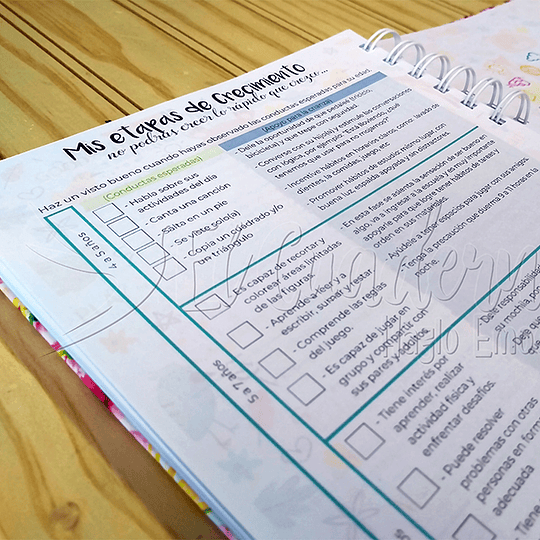 Mis etapas de Crecimiento
no podrás creer lo rápido que crezco...
Haz un visto bueno cuando hayas observado las conductas esperadas para su edad.
(Conductas esperadas)
(Apoyo para la crianza)
4 a 5 años
- Habla sobre sus
actividades del día
- Canta una canción
- Salta en un pie
- Se viste solo(a)
- Copia un cuadrado y/o
un triángulo
- Dele la oportunidad de que pedalee (triciclo,
bicicleta) y que trepe con seguridad.
- Converse con su hijo(a) y estimule las conversaciones
con lógica, por ejemplo: "Está lloviendo, ¿qué
tenemos que usar para no mojarnos?"
- Incentive hábitos en horarios claros, como: lavado de
dientes, la comida, juego, etc.
- Promover hábitos de estudio mismo lugar con
buena luz, utensilios para pintar y dibujar.
5 a 7 años
- Es capaz de recortar y
colorear áreas limitadas
de las figuras
- Aprende a leer y a
escribir, sumar y restar.
- Comprende las reglas
del juego
- Es capaz de jugar en
grupo y compartir con
sus pares y adultos.
- En esta fase se asienta la sensación de ser bueno en
algo, va a ingresar a la escuela y es muy importante
apoyarle para que logre tener hábitos de lavado y
orden en sus materiales.
- Ayúdele a tener espacios para jugar con los amigos.
- Tenga la precaución que duerma 9 a 11 horas en la
noche.
- Tiene interés por
aprender, realizar
actividad física y
enfrentar desafíos.
- Puede resolver
problemas con otras
personas en forma
adecuada
- Dele responsabilidad
su mochila,
- Dele
que